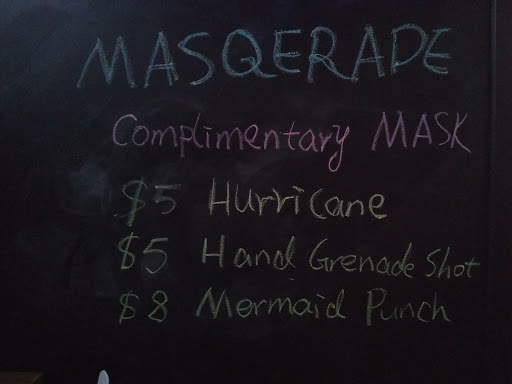 MASQERADE
Complimentary MASK
$5 Hurricane
$5 Hand Grenade Shot
$8 Mermaid Punch